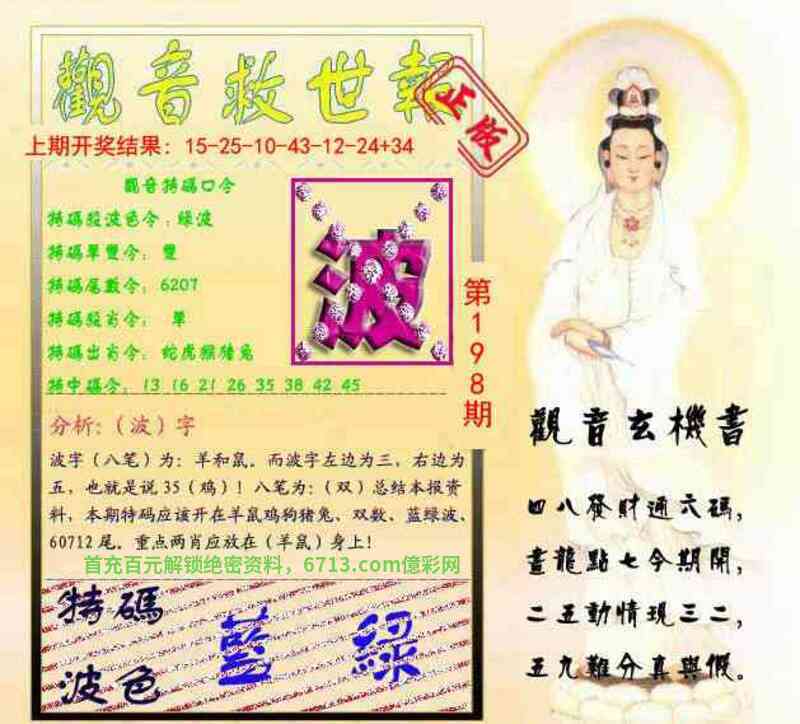 觀音救世報
正版
上期开奖结果：15-25-10-43-12-24+34
觀音特碼口令
特碼段波色令：綠波
特碼單雙令： 雙
特碼尾數令：6207
特碼段肖令： 單
特碼出肖令： 蛇虎猴猪兔
特中碼令：13 16 21 26 35 38 42 45
波
第198期
分析:（波）字
波字（八笔）为：羊和鼠。而波字左边为三，右边为
五，也就是说35（鸡）！八笔为：（双）总结本报资
料，本期特码应该开在羊鼠鸡狗猪兔、双数、蓝绿波、
60712尾。重点两肖应放在（羊鼠）身上！
首充百元解锁绝密资料，6713.com億彩网
特碼
波色
藍 綠
觀音玄機書
四八發財通六碼，
畫龍點七今期開，
二五動情現三二，
五九難分真與假。